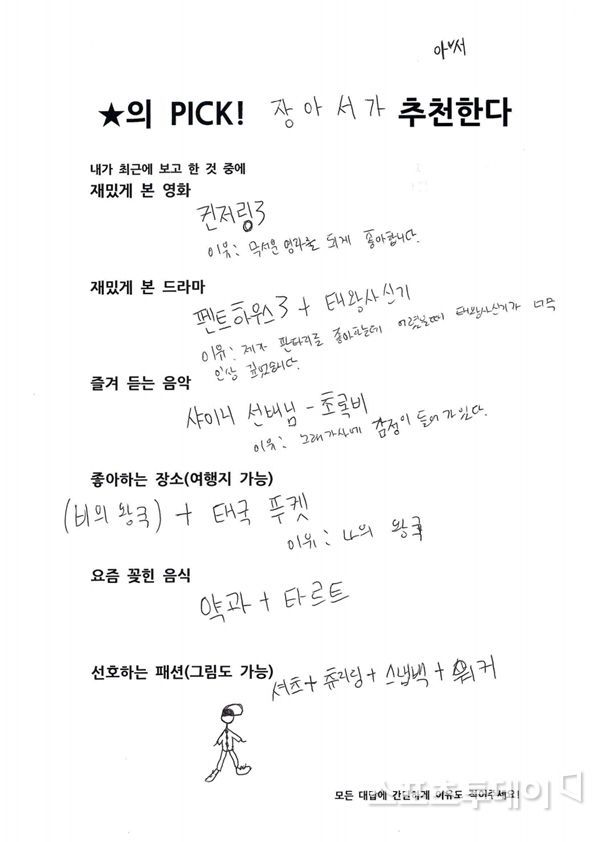 아서
★의 PICK! 장아서가 추천한다
내가 최근에 보고 한 것 중에
재밌게 본 영화
컨저링3
이유: 무서운 영화를 되게 좋아합니다.
재밌게 본 드라마
펜트하우스3 + 태왕사신기
이유: 제가 판타지를 좋아하는데 어렸을때 태왕사신기가 너무
인상 깊었습니다.
즐겨 듣는 음악
샤이니 선배님 - 초록비
이유: 노래가사에 감정이 들어가있다.
좋아하는 장소(여행지 가능)
(비의 왕국) + 태국 푸켓
이유: 나의 왕국
요즘 꽂힌 음식
약과 + 타르트
선호하는 패션(그림도 가능)
셔츠 + 츄리닝 + 스냅백 + 워커
모든 대답에 간단하게 이유도 적어주세요!
스포츠투데이